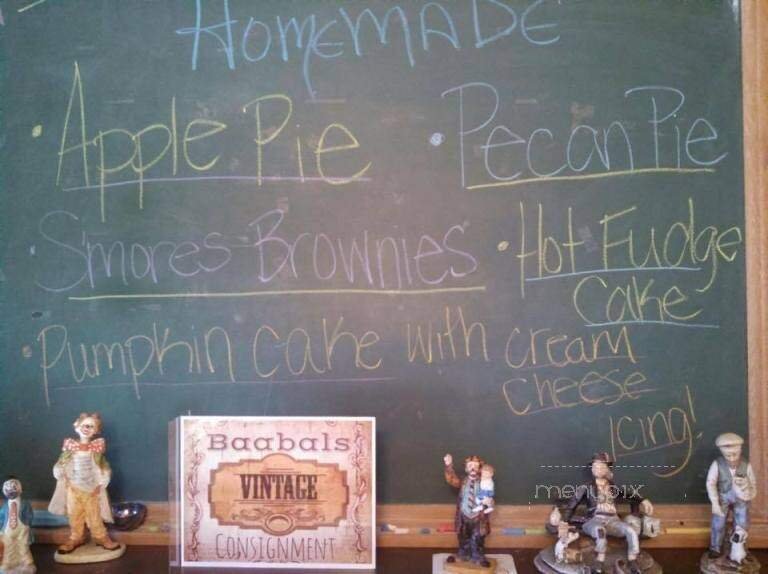 HOMEMADE
• Apple Pie
• Pecan Pie
• S'mores Brownies
• Hot Fudge
Cake
• Pumpkin cake with cream
cheese
Icing!
Baabals
VINTAGE
CONSIGNMENT
menupix